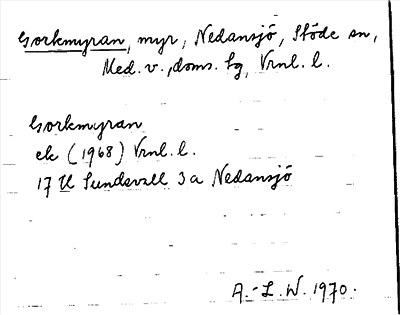 Gorkmyran, myr, Nedansjö, Stöde sn,
Med. v., doms. sg, Vrnl. l.
Gorkmyran
ek (1968) Vrnl. l.
17 H Sundsvall 3a Nedansjö
A.-L. W. 1970.